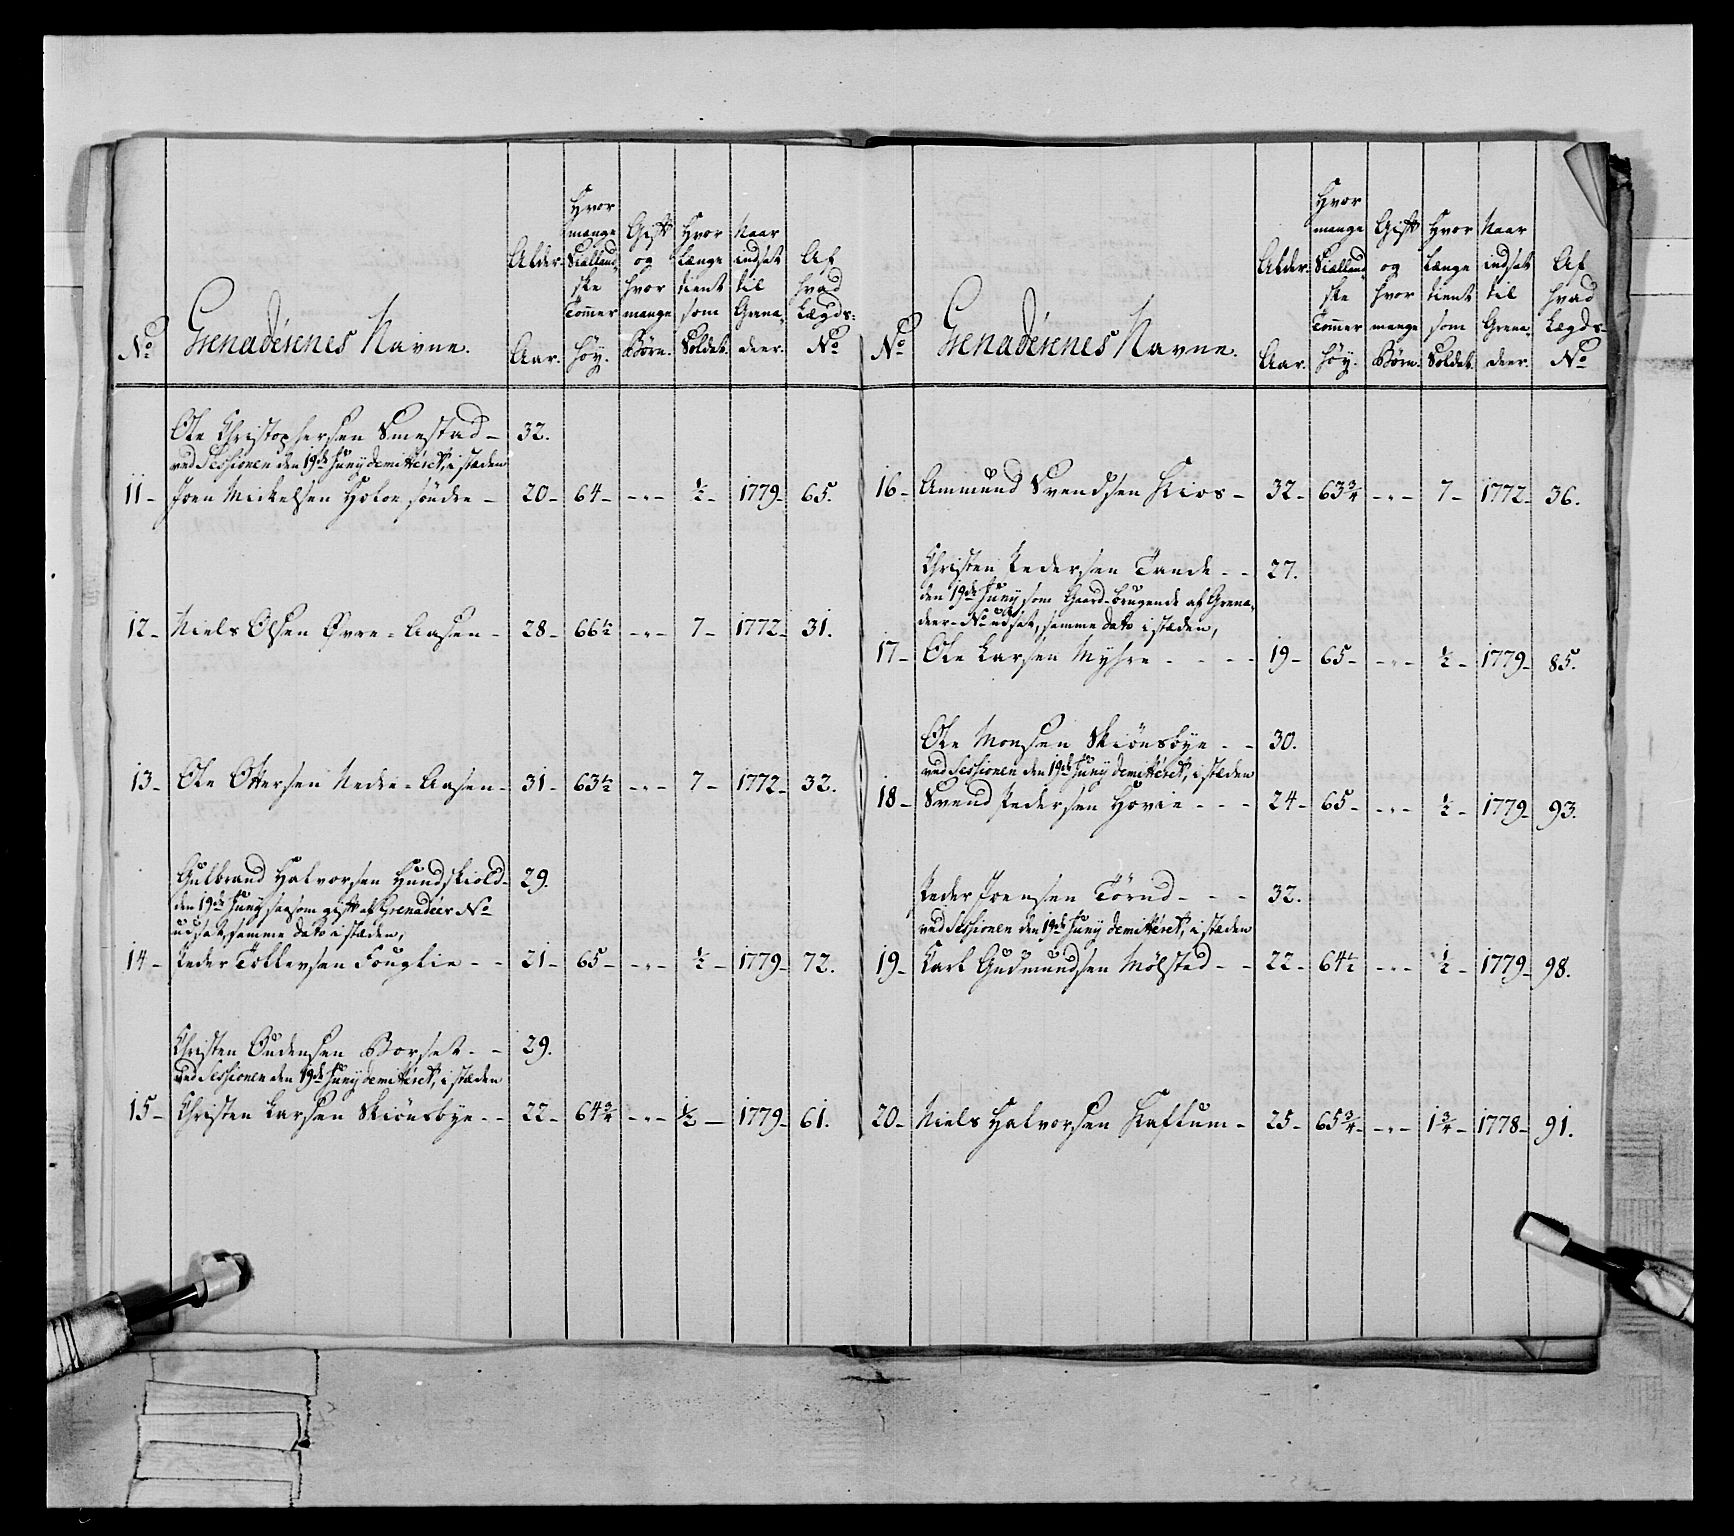 No
Grenadérenes Navne.
Alder.
Aar.
Hvor
mange
Siælland-
ske
Tommer
høy.
Gift
og
hvor
mange
Børn.
Hvor
længe
tient
som
Soldat.
Naar
indsat
til
Grena-
deer.
Af
hvad
Lægds-
No
Ole Christophersen Smestad - 32.
ved Sessionen den 19de Juny demitteret, i stæden
11 - Joen Mickelsen Holoe søndre - 20 - 64 - - " - ½ - 1779 - 65.
12 - Niels Olsen Øvre-Aasen - 28 - 66½ - " - 7 - 1772 - 31.
13 - Ole Ottersen Nedre-Aasen - 31 - 63½ - " - 7 - 1772 - 32.
Gulbrand Halvorsen Hundskiold - 29.
den 19de Juny saasom gift af Grenadéer No
udsat, samme dato i stæden,
14 - Peder Tollevsen Fouglie - - 21 - 65 - - " - ½ - 1779 - 72.
Christen Oudensen Borset - - 29.
ved Sessionen den 19de Juny demitteret, i stæden
15 - Christen Larsen Skiønsbye - - 22 - 64¾ - " - ½ - 1779 - 61.
No
Grenadérenes Navne.
Alder.
Aar.
Hvor
mange
Siælland-
ske
Tommer
høy.
Gift
og
hvor
mange
Børn.
Hvor
længe
tient
som
Soldat.
Naar
indsatt
til
Grena-
deer.
Af
hvad
Lægds-
No
16 - Ammund Svendsen Kios - 32 - 63¾ - " - 7 - 1772 - 36.
Christen Pedersen Tande - - 27.
den 19de Juny som Gaard-brugende af Grena-
deer-No udsat, samme dato i stæden,
17 - Ole Larsen Myhre - - - - 19 - 65 - - " - ½ - 1779 - 85.
Ole Monsen Skiønsbye - - 30.
ved Sessionen den 19de Juny demitteret, i stæden
18 - Svend Pedersen Hovie - - - 24 - 65 - - " - ½ - 1779 - 93.
Peder Joensen Törud - - - 32.
ved Sessionen den 19de Juny demitteret, i stæden
19 - Carl Gudmundsen Mølsted - - 22 - 64½ - " - ½ - 1779 - 98.
20 - Niels Halvorsen Kaftum - 25 - 65¾ - " - 1¾ - 1778 - 91.